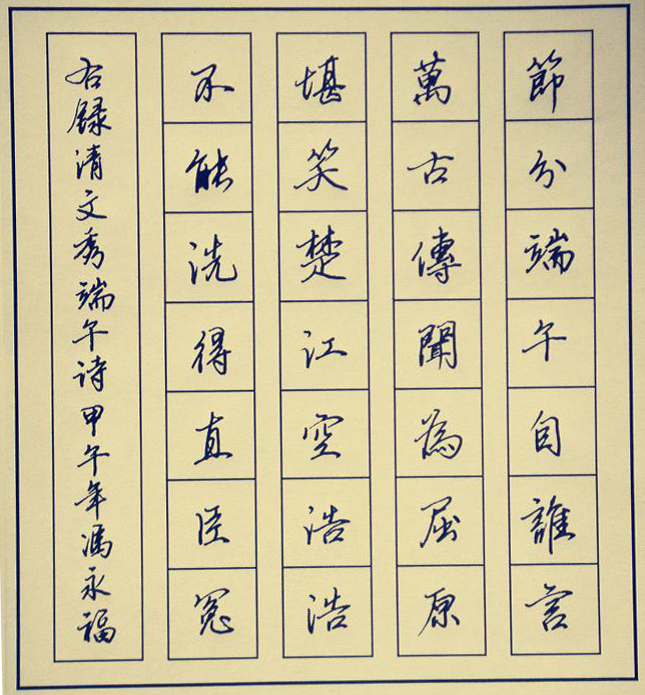 節分端午自誰言
萬古傳聞為屈原
堪笑楚江空浩浩
不能洗得直臣冤
右録清文秀端午诗甲午年馮永福